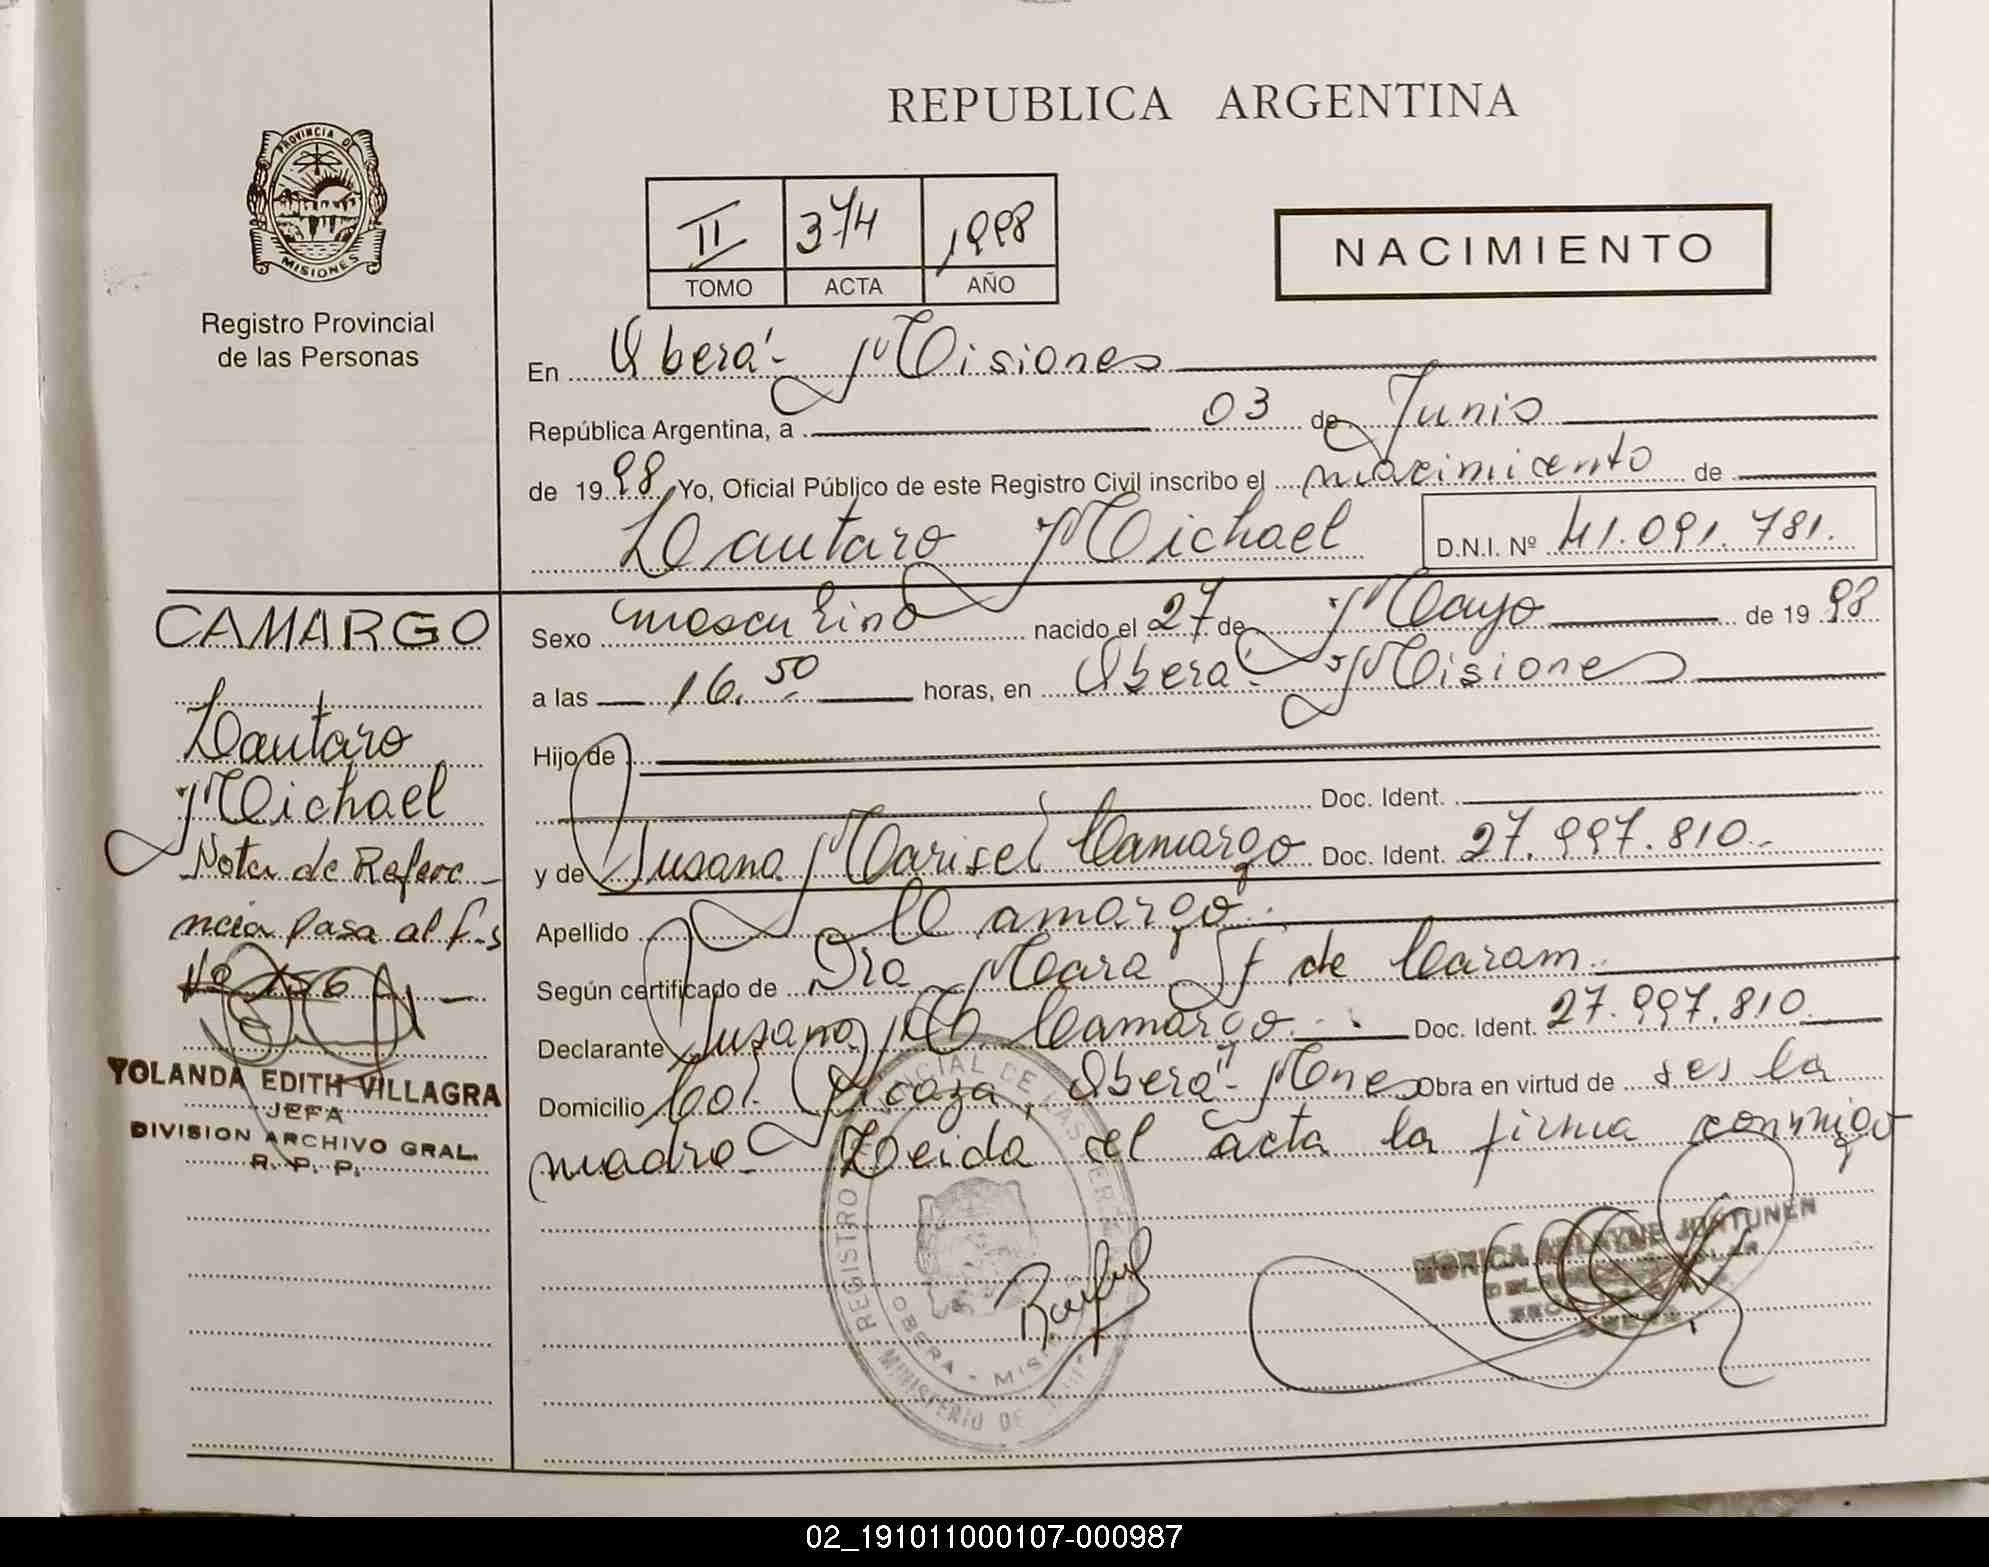 REPUBLICA ARGENTINA
PROVINCIA DE
MISIONES
Registro Provincial
de las Personas
II 374 1998
TOMO ACTA AÑO
NACIMIENTO
En Oberá - Misiones
República Argentina, a 03 de Junio
de 1998 Yo, Oficial Público de este Registro Civil inscribo el nacimiento de
Lautaro Michael D.N.I. Nº 41.091.781.
CAMARGO
Lautaro
Michael
Nota de Refere-
ncia pasa al f-s
Nº 156
YOLANDA EDITH VILLAGRA
JEFA
DIVISION ARCHIVO GRAL.
R. P. P.
Sexo masculino nacido el 27 de Mayo de 1998
a las 16.50 horas, en Oberá - Misiones
Hijo de
Doc. Ident.
y de Susana Marisel Camargo Doc. Ident. 27.997.810.-
Apellido Camargo.
Según certificado de Dra Mara de Caram.
Declarante Susana M. Camargo. Doc. Ident. 27.997.810.
Domicilio Col. Picaza, Oberá - Mnes Obra en virtud de ser la
madre Leida el acta la firma conmigo
REGISTRO PROVINCIAL DE LAS PERSONAS
OBERA - MISIONES
MINISTERIO DE
MONICA JUNTUNEN
02_191011000107-000987